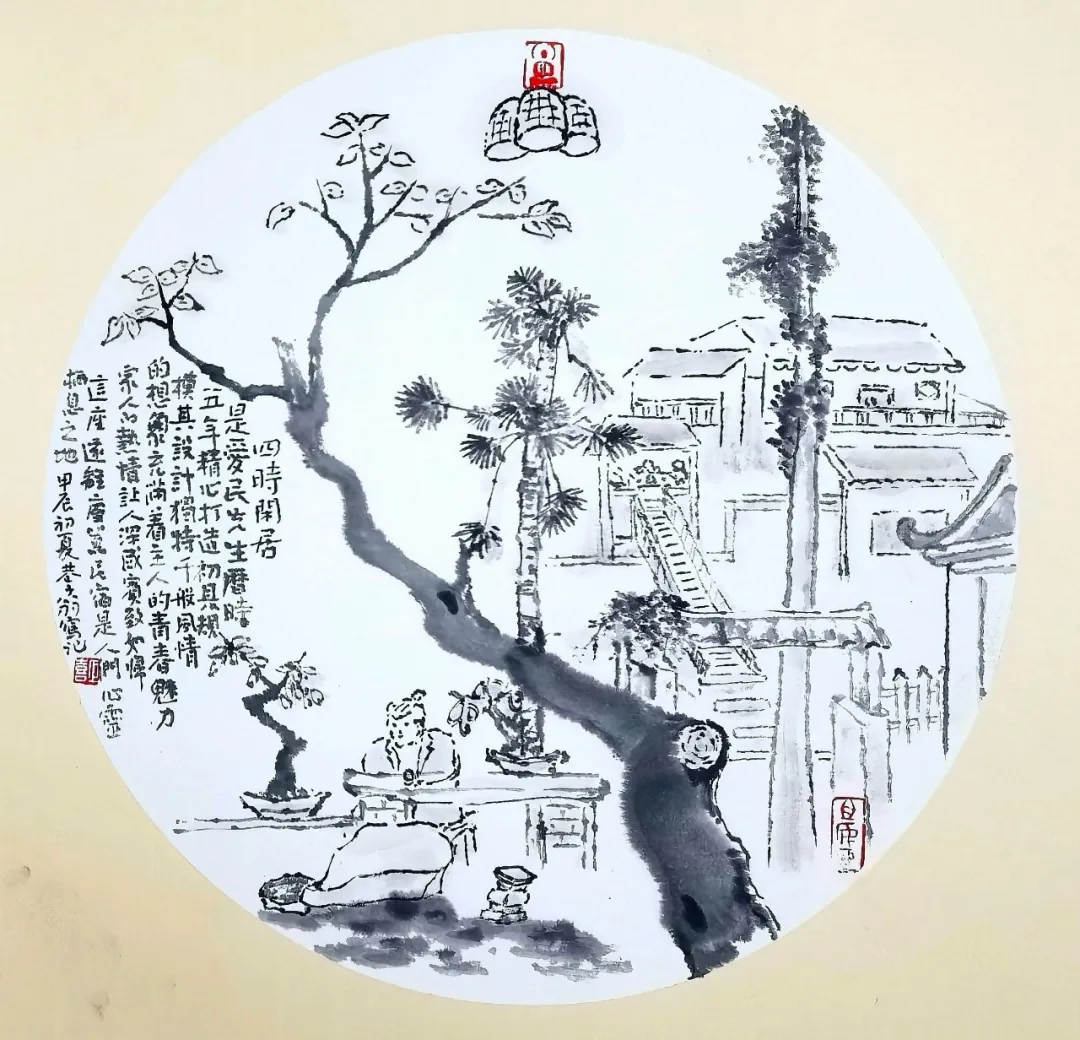 四時閑居
是愛民先生曆時
五年精心打造初具規
模其設計獨特千般風情
的想象充滿着主人的青春魅力
家人的熱情让人深感賓致如歸
這座遠離塵民宿是人門心靈
栖息之地 甲辰初夏翁寫記